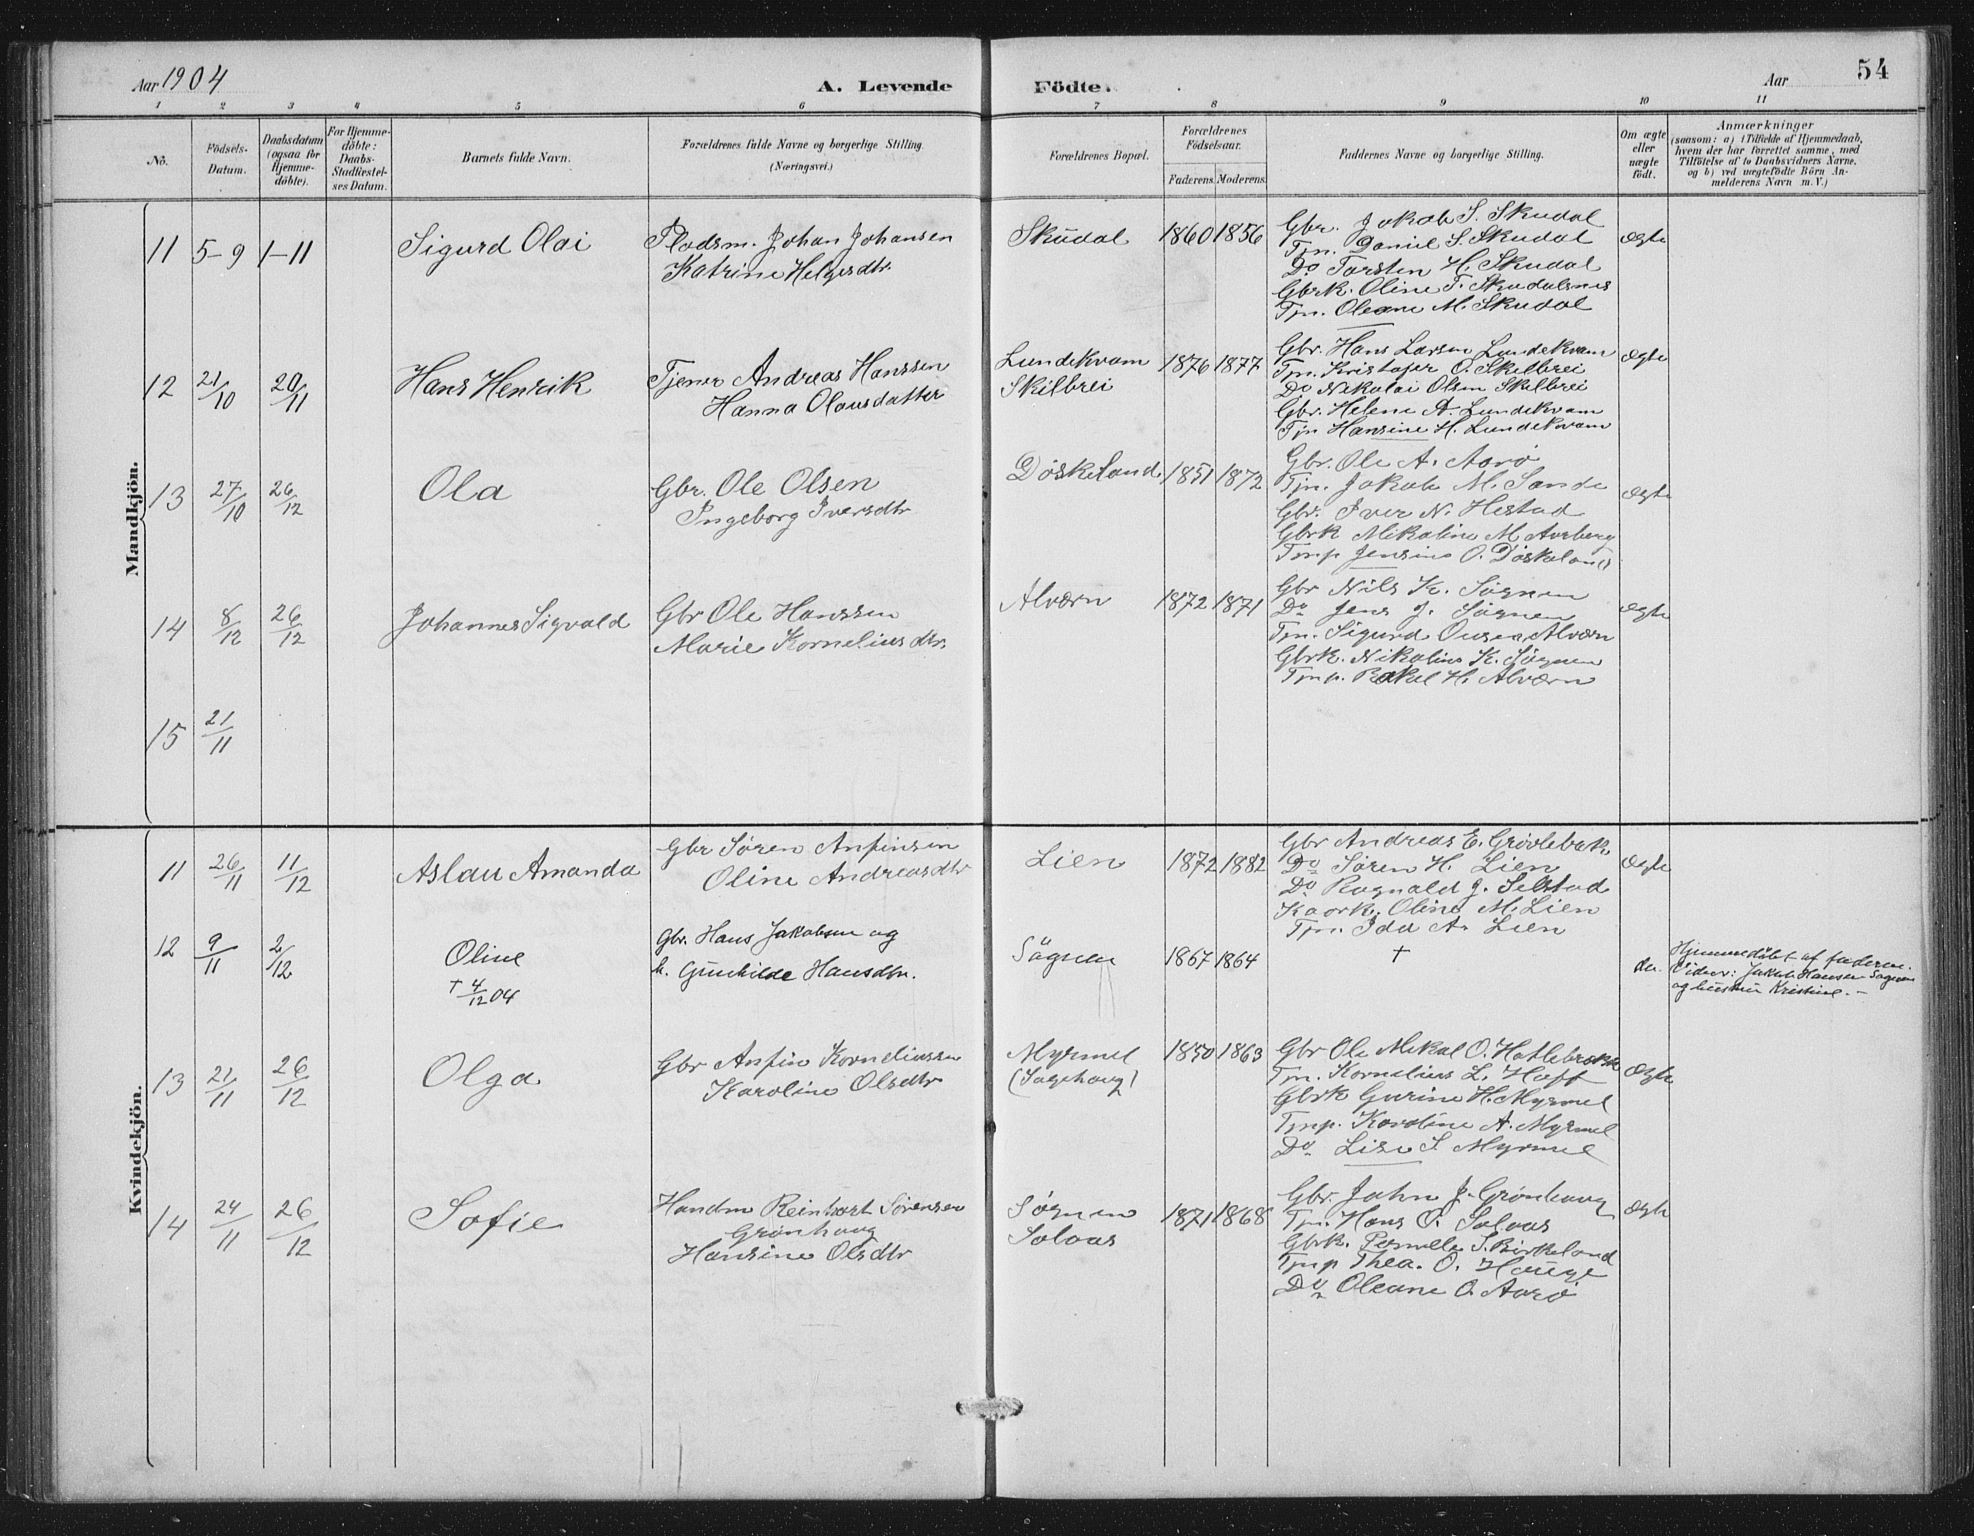 Aar 1904
A. Levende Födte.
Aar
54
1 2 3 4 5 6 7 8 9 10 11
No.
Födsels-Datum.
Daabsdatum (ogsaa för Hjemme-döbte).
For Hjemme-döbte: Daabs-Stadfæstel-ses Datum.
Barnets fulde Navn.
Forældrenes fulde Navne og borgerlige Stilling.
(Næringsvei.)
Forældrenes Bopæl.
Forældrenes Födselsaar.
Faderens. Moderens.
Faddernes Navne og borgerlige Stilling.
Om ægte eller uægte födt.
Anmærkninger
(saasom: a) i Tilfælde af Hjemmedaab,
hvem der har forrettet samme, med
Tilföielse af to Daabsvidners Navne,
og b) ved uægtefödte Börn An-
melderens Navn m. V.)
Mandkjön.
11 5-9 1-11 Sigurd Olai
Pladsm. Johan Johansen
Katrine Helgesdtr.
Skudal 1860 1856
Gbr. Jakob S. Skudal
Tjn. Daniel S. Skudal
Do Torsten H. Skudal
Gbrk. Oline T. Skudalsnes
Tjn. Oleane M. Skudal
Ægte
12 21/10 20/11 Hans Henrik
Tjener Andreas Hanssen
Hanna Olausdatter
Lundekvam
Skilbrei
1876 1877
Gbr. Hans Larsen Lundekvam
Tjn. Kristofer O. Skilbrei
Do Nikolai Olsen Skilbrei
Gbr. Helene A. Lundekvam
Tjn Hansine H. Lundekvam
Ægte
13 27/10 26/12 Ola
Gbr. Ole Olsen
Ingeborg Iversdtr
Døskeland 1851 1872
Gbr. Ole A. Aarø
Tjn. Jakob M. Sande
Gbr. Iver N. Hestad
Gbrk Mikaline M.
Tmp Jensine O. Døskeland
Ægte
14 8/12 26/12 Johannes Sigvald
Gbr Ole Hanssen
Marie Kornelius dtr.
Alværn 1872 1871
Gbr Nils K. Søgnen
Do Jens J. Søgnen
Tjn. Sigurd Alværn
Gbrk. Nikoline K. Søgnen
Tmp. Rakel H. Alværn
Ægte
15 21/11
Kvindekjön.
11 26/11 11/12 Aslau Amanda
Gbr Søren Anfinsen
Oline Andreasdtr
Lien 1872 1882
Gbr Andreas E. Grovlebak
Do Søren H. Lien
Do Ragnald J. Selstad
Oline M. Lien
Tjn. Ida A. Lien
Ægte
12 9/11 2/12 Oline
† 4/12 04
Gbr. Hans Jakobsen og
h. Gunhilde Hansdtr.
Sögnen 1867 1864
†
do.
Hjemmedöbt af faderen.
Vidner: Jakob Hansen Sögnen
og hustru Kristine. –
13 21/11 26/12 Olga
Gbr Anfin Korneliussen
Karoline Olsdtr
Myrmel
(Sagehaug)
1850 1863
Gbr Ole Mikal O. Hatlebrekke
Tjn. Kornelius L. Hoff
Gbrk Gurine H. Myrmel
Tmp. Karoline A. Myrmel
Do Lise S Myrmel
Ægte
14 24/11 26/12 Sofie
Handm Reinhart Sørensen
Grønhaug
Hansine Olsdtr
Søgnen
Solaas
1871 1868
Gbr. John J. Grønhaug
Tjn. Hans O. Solaas
Gbrk. Pernelle S. Birkeland
Tmp Thea. O. Hauge
Do Oleane O. Aarø
Ægte